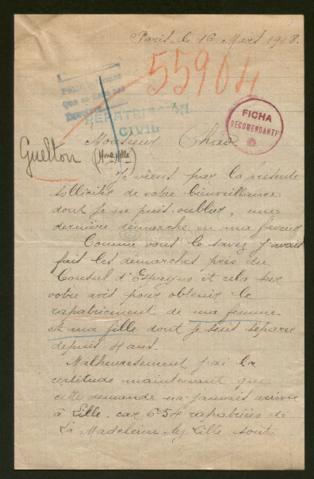 Paris le 16 Mars 1918.
55904
REPATRIACIÓN
CIVIL
FICHA
RECOMENDANTE
Guelton
Monsieur
Je viens par la présente
solliciter de votre bienveillance
dont je ne puis oublier, une
dernière démarche en ma faveur
Comme vous le savez j'avais
fait les démarches près du
Consul d'Espagne et cela sur
votre avis pour obtenir le
rapatriement de ma femme
et ma fille dont je suis séparé
depuis 4 ans.
Malheureusement j'ai la
certitude maintenant que
cette demande n'a jamais arrivée
à Lille, car 654 rapatriées de
La Madeleine lez Lille sont